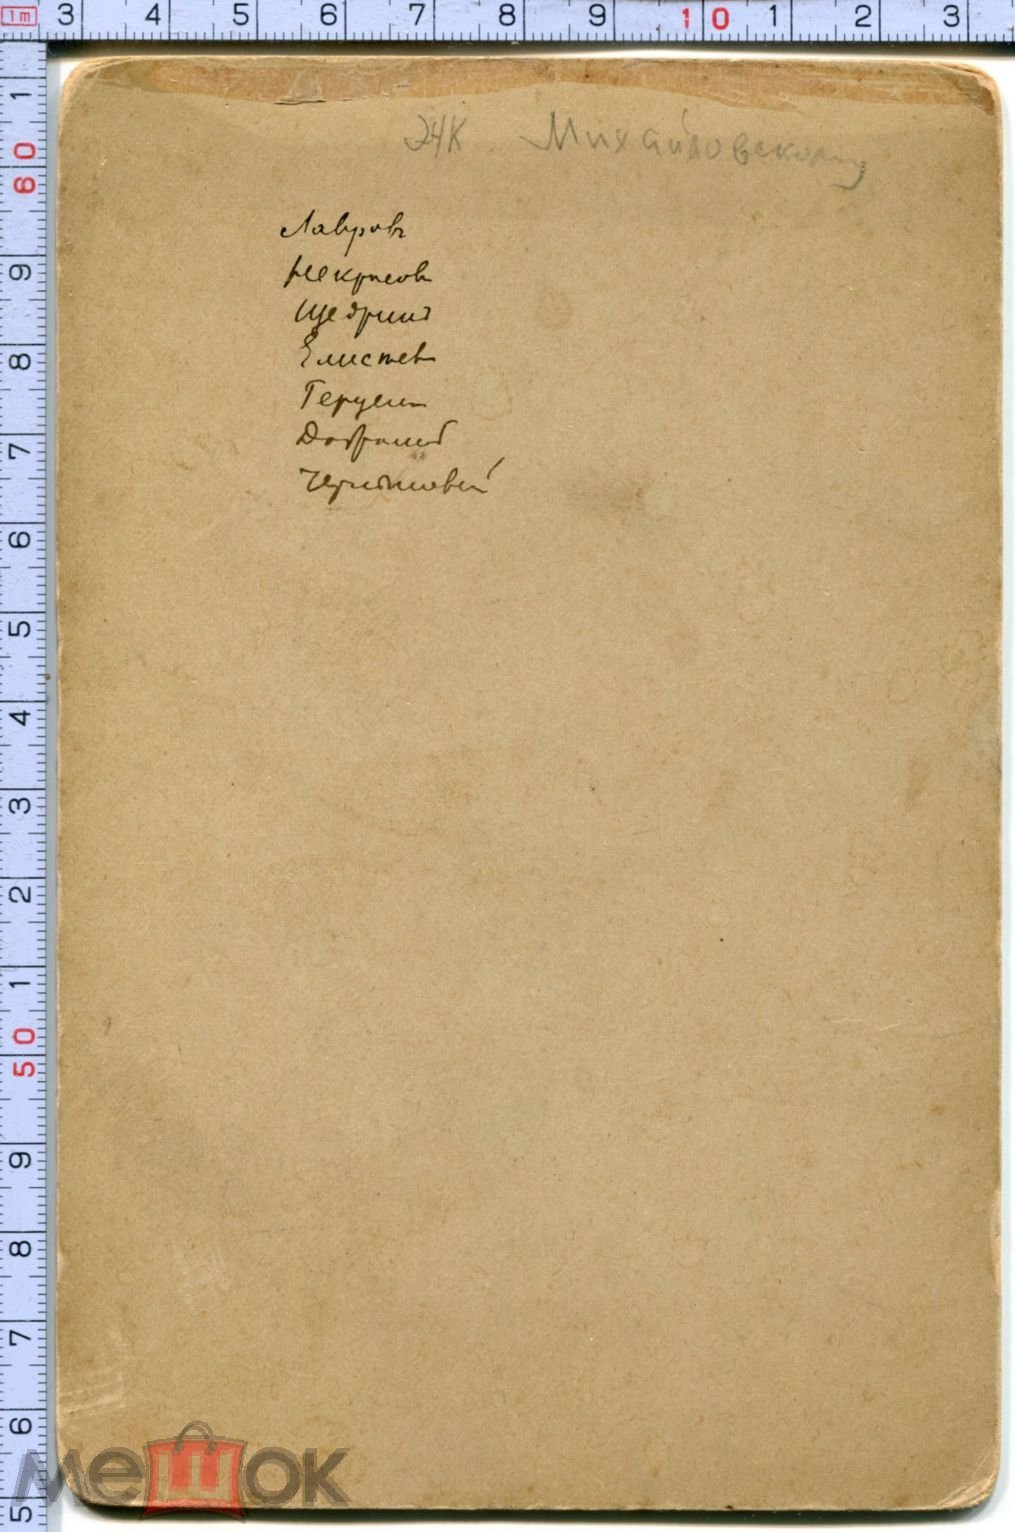 1m 3 4 5 6 7 8 9 10 1 2 3
24К Михайловскому
Лавровъ
Некрасовъ
Щедринъ
Елисеев
Герцен
Добролюб
Чернышевскій
1
60
9
8
7
6
5
4
3
2
1
50
9
8
7
6
5
мешок